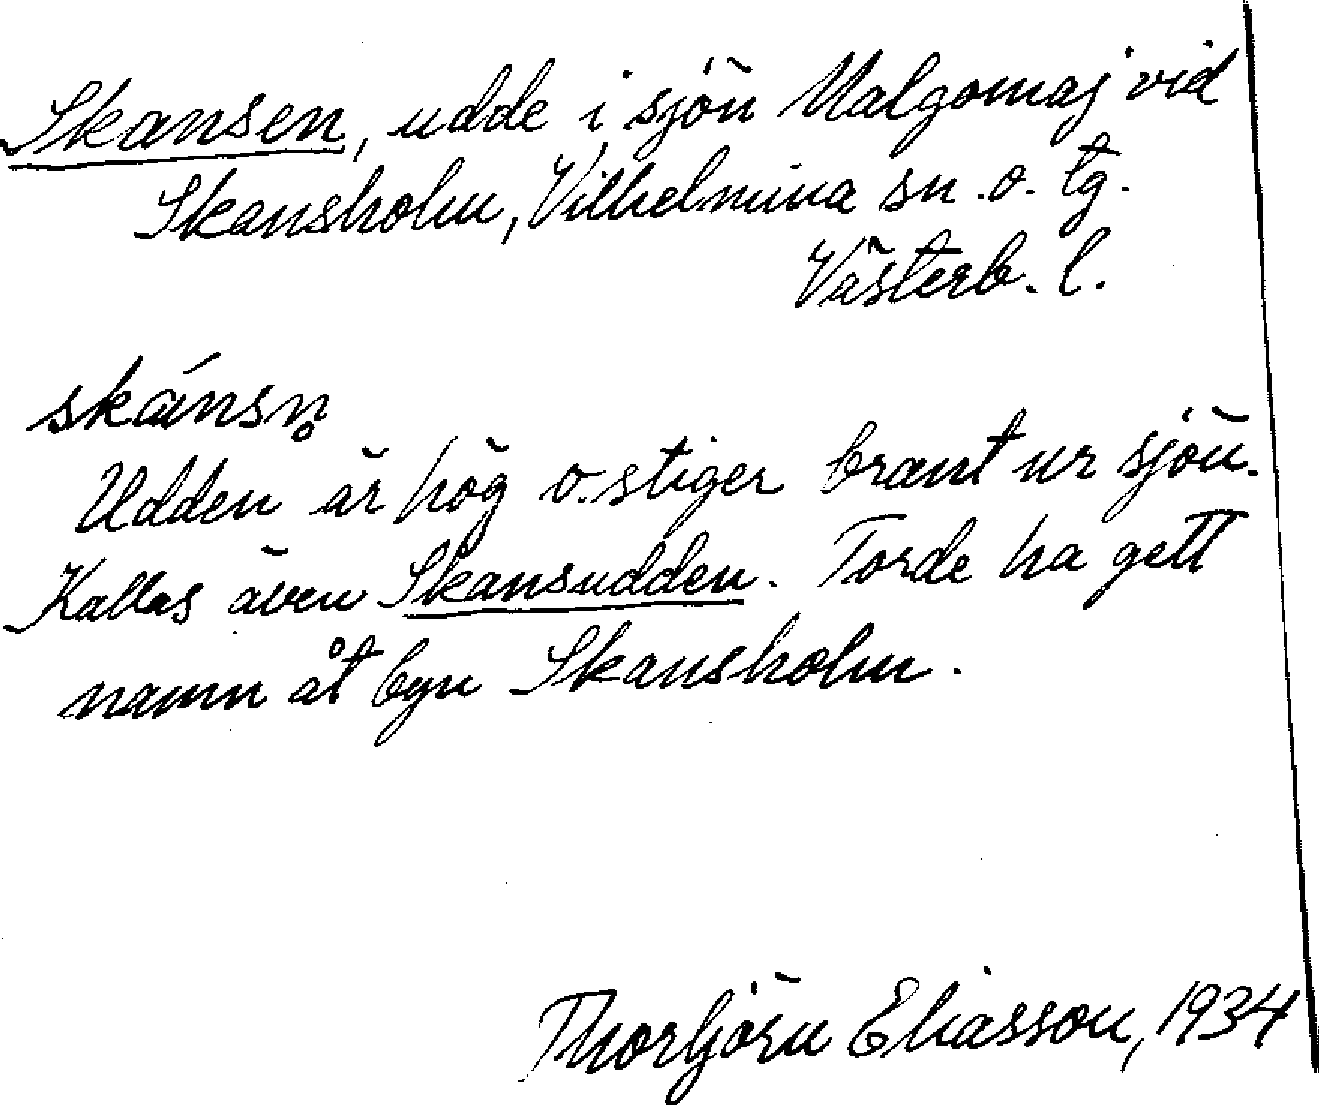 Skansen, udde i sjön Malgomaj vid
Skansholm, Vilhelmina sn. o. tg.
Västerb. l.
skánsn̥
Udden är hög o. stiger brant ur sjön.
Kallas även Skansudden. Torde ha gett
namn åt byn Skansholm.
Thorbjörn Eliasson, 1934